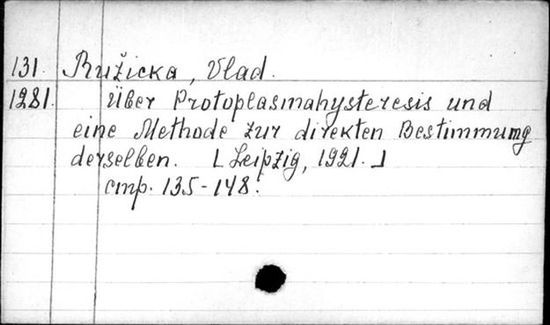 131. Ružicka, Vlad.
1281. Über Protoplasmahysteresis und
eine Methode zur direkten Bestimmung
derselben. [Leipzig, 1921.]
cmp. 135-148.